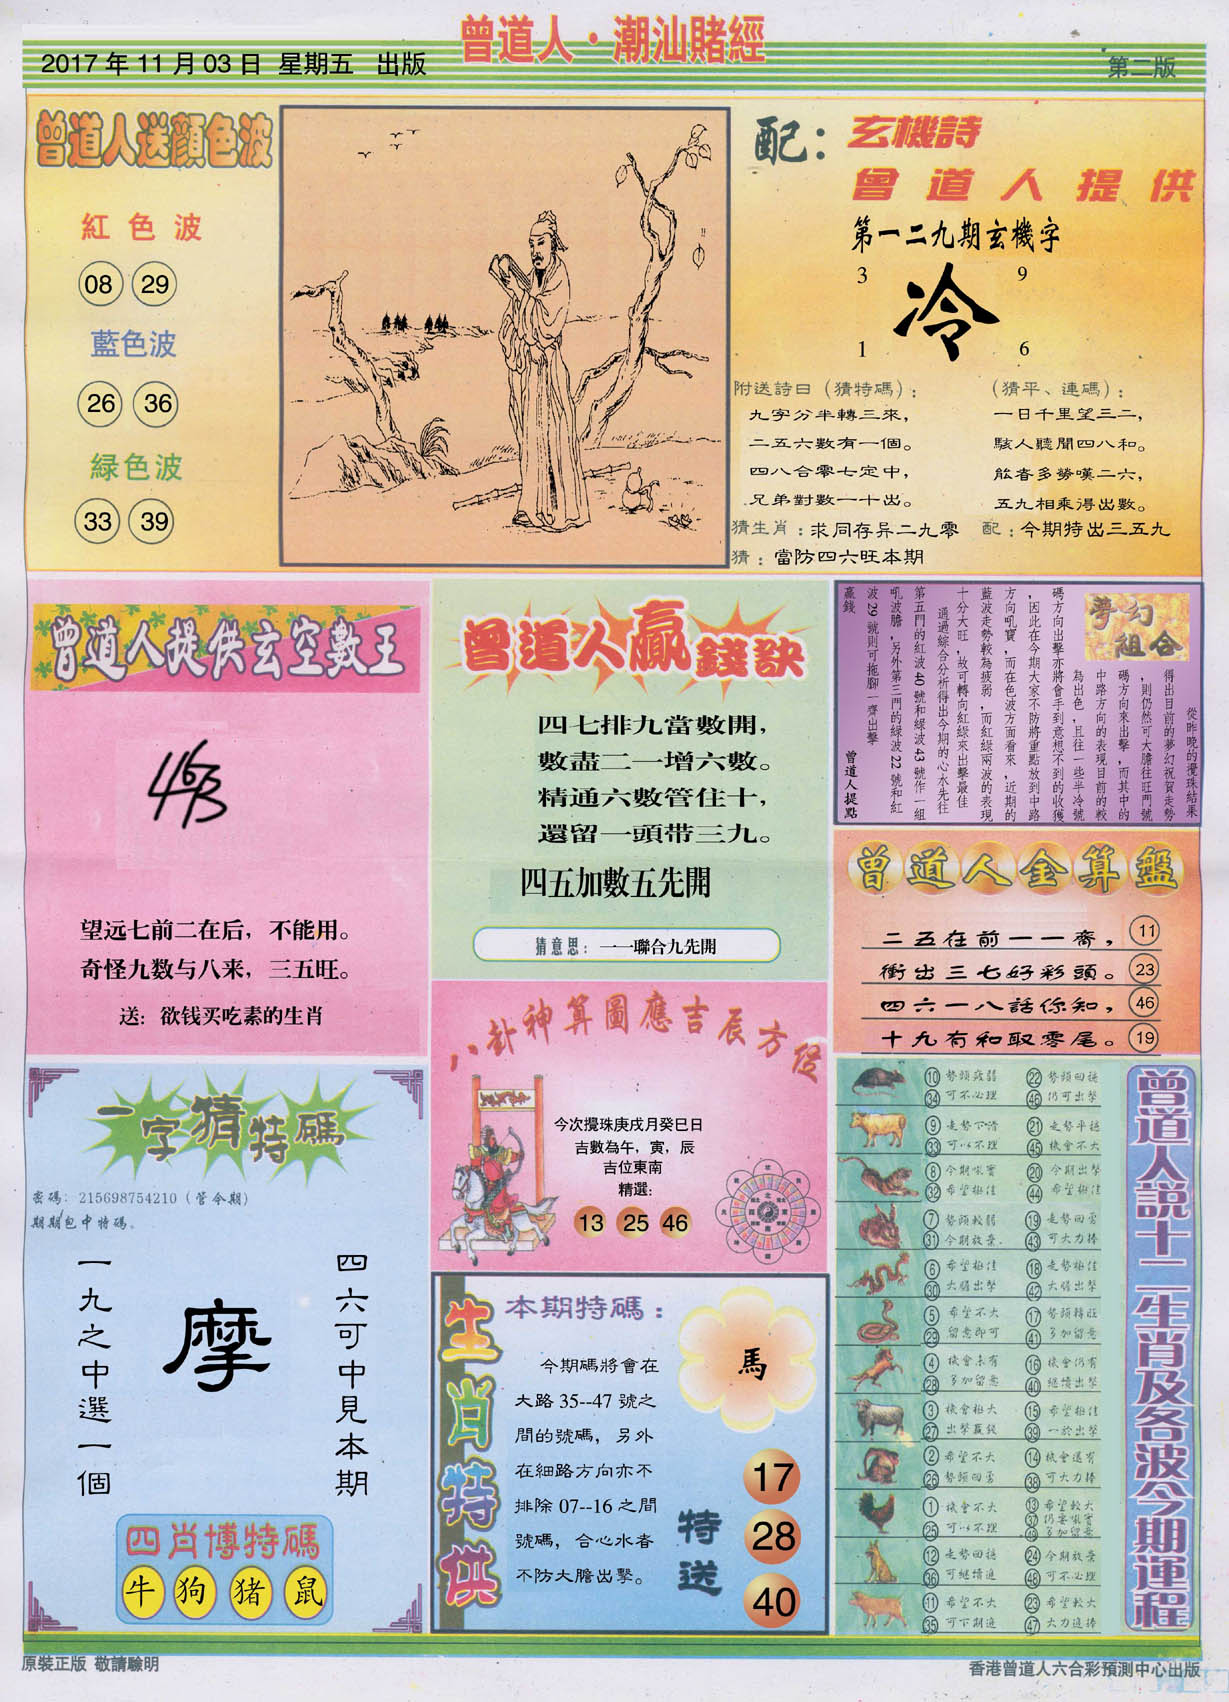 曾道人·潮汕賭經
2017年11月03日 星期五 出版
第二版
曾道人送顏色波
紅色波
08 29
藍色波
26 36
緑色波
33 39
配：玄機詩
曾道人提供
第一二九期玄機字
3 9
冷
1 6
附送詩曰（猜特碼）：
九字分半轉三來，
二五六數有一個。
四八合零七定中，
兄弟對數一十出。
（猜平、連碼）：
一日千里望三二，
駭人聽聞四八和。
能者多勞嘆二六，
五九相乘得出數。
猜生肖：求同存异二九零
配：今期特出三五九
猜：當防四六旺本期
曾道人提供玄空數王
望远七前二在后，不能用。
奇怪九数与八来，三五旺。
送：欲钱买吃素的生肖
曾道人贏錢訣
四七排九當數開，
數盡二一增六數。
精通六數管住十，
還留一頭带三九。
四五加數五先開
猜意思：一一聯合九先開
夢幻組合
從昨晚的攪珠結果
得出目前的夢幻祝賀走勢
，則仍然可大膽往旺門號
碼方向來出擊，而其中的
中路方向的表現目前的較
為出色，且往一些半冷號
碼方向出擊亦將會手到意想不到的收獲
，因此在今期大家不防將重點放到中路
方向吼寶，而在色波方面看來，近期的
藍波走勢較為疲弱，而紅綠兩波的表現
十分大旺，故可轉向紅綠來出擊最佳
通過綜合分析得出今期的心水先往
第五門的紅波40號和緑波43號作一組
吼波膽，另外第三門的緑波22號和紅
波29號則可拖腳一齊出擊
贏錢
曾道人提點
曾道人金算盤
二五在前一一齊， 11
衝出三七好彩頭。 23
四六一八話你知， 46
十九有和取零尾。 19
八卦神算圖應吉辰方位
今次攪珠庚戌月癸巳日
吉數為午，寅，辰
吉位東南
精選：
13 25 46
一字猜特碼
密碼：215698754210（管今期）
期期包中特碼。
四六可中見本期
摩
一九之中選一個
四肖博特碼
牛 狗 猪 鼠
生肖特供
本期特碼：
馬
今期碼將會在
大路35--47號之
間的號碼，另外
在細路方向亦不
排除07--16之間
號碼，合心水者
不防大膽出擊。
特送
17
28
40
曾道人説十二生肖及各波今期運程
10 勢頭疲弱 22 勢頭回穩
34 可不必理 46 仍可出擊
9 走勢下滑 21 走勢平穩
33 可以不理 45 機會不大
8 今期吼寶 20 今期出擊
32 希望極佳 44 希望極佳
7 勢頭較弱 19 走勢回勇
31 今期放棄 43 可大力捧
6 希望極佳 18 走勢極佳
30 大膽出擊 42 大膽出擊
5 希望不大 17 勢頭轉旺
29 留意即可 41 多加留意
4 機會未有 16 機會仍有
28 多加留意 40 繼續出擊
3 機會極大 15 希望極佳
27 出擊贏錢 39 一於出擊
2 希望不大 14 機會還有
26 勢頭回勇 38 可大力捧
1 機會不大 13 希望較大
25 可以不理 37 仍要吼實
49 多加留意
12 走勢回穩 24 今期放棄
36 可繼續追 48 可不必理
11 希望不大 23 希望較大
35 可下期追 47 大力追捧
原裝正版 敬請驗明
香港曾道人六合彩預測中心出版